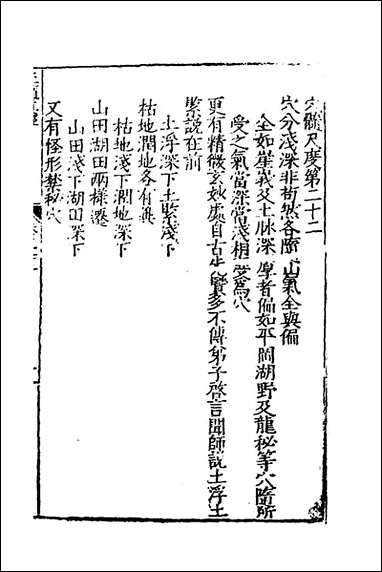 穴體尺度第二十二
穴分淺深非苟然各隨山氣全與偏
全如崖峩及土脉深厚者偏如平岡湖野及龍秘等穴隨所
受之氣當深當淺相受爲穴
更有精微玄妙處自古生賢多不傳弟子啓言聞師説土浮土
緊説在前
土浮深下土緊淺下
枯地濶地各有與
枯地淺下濶地深下
山田湖田兩樣遷
山田淺下湖田深下
又有怪形禁秘穴